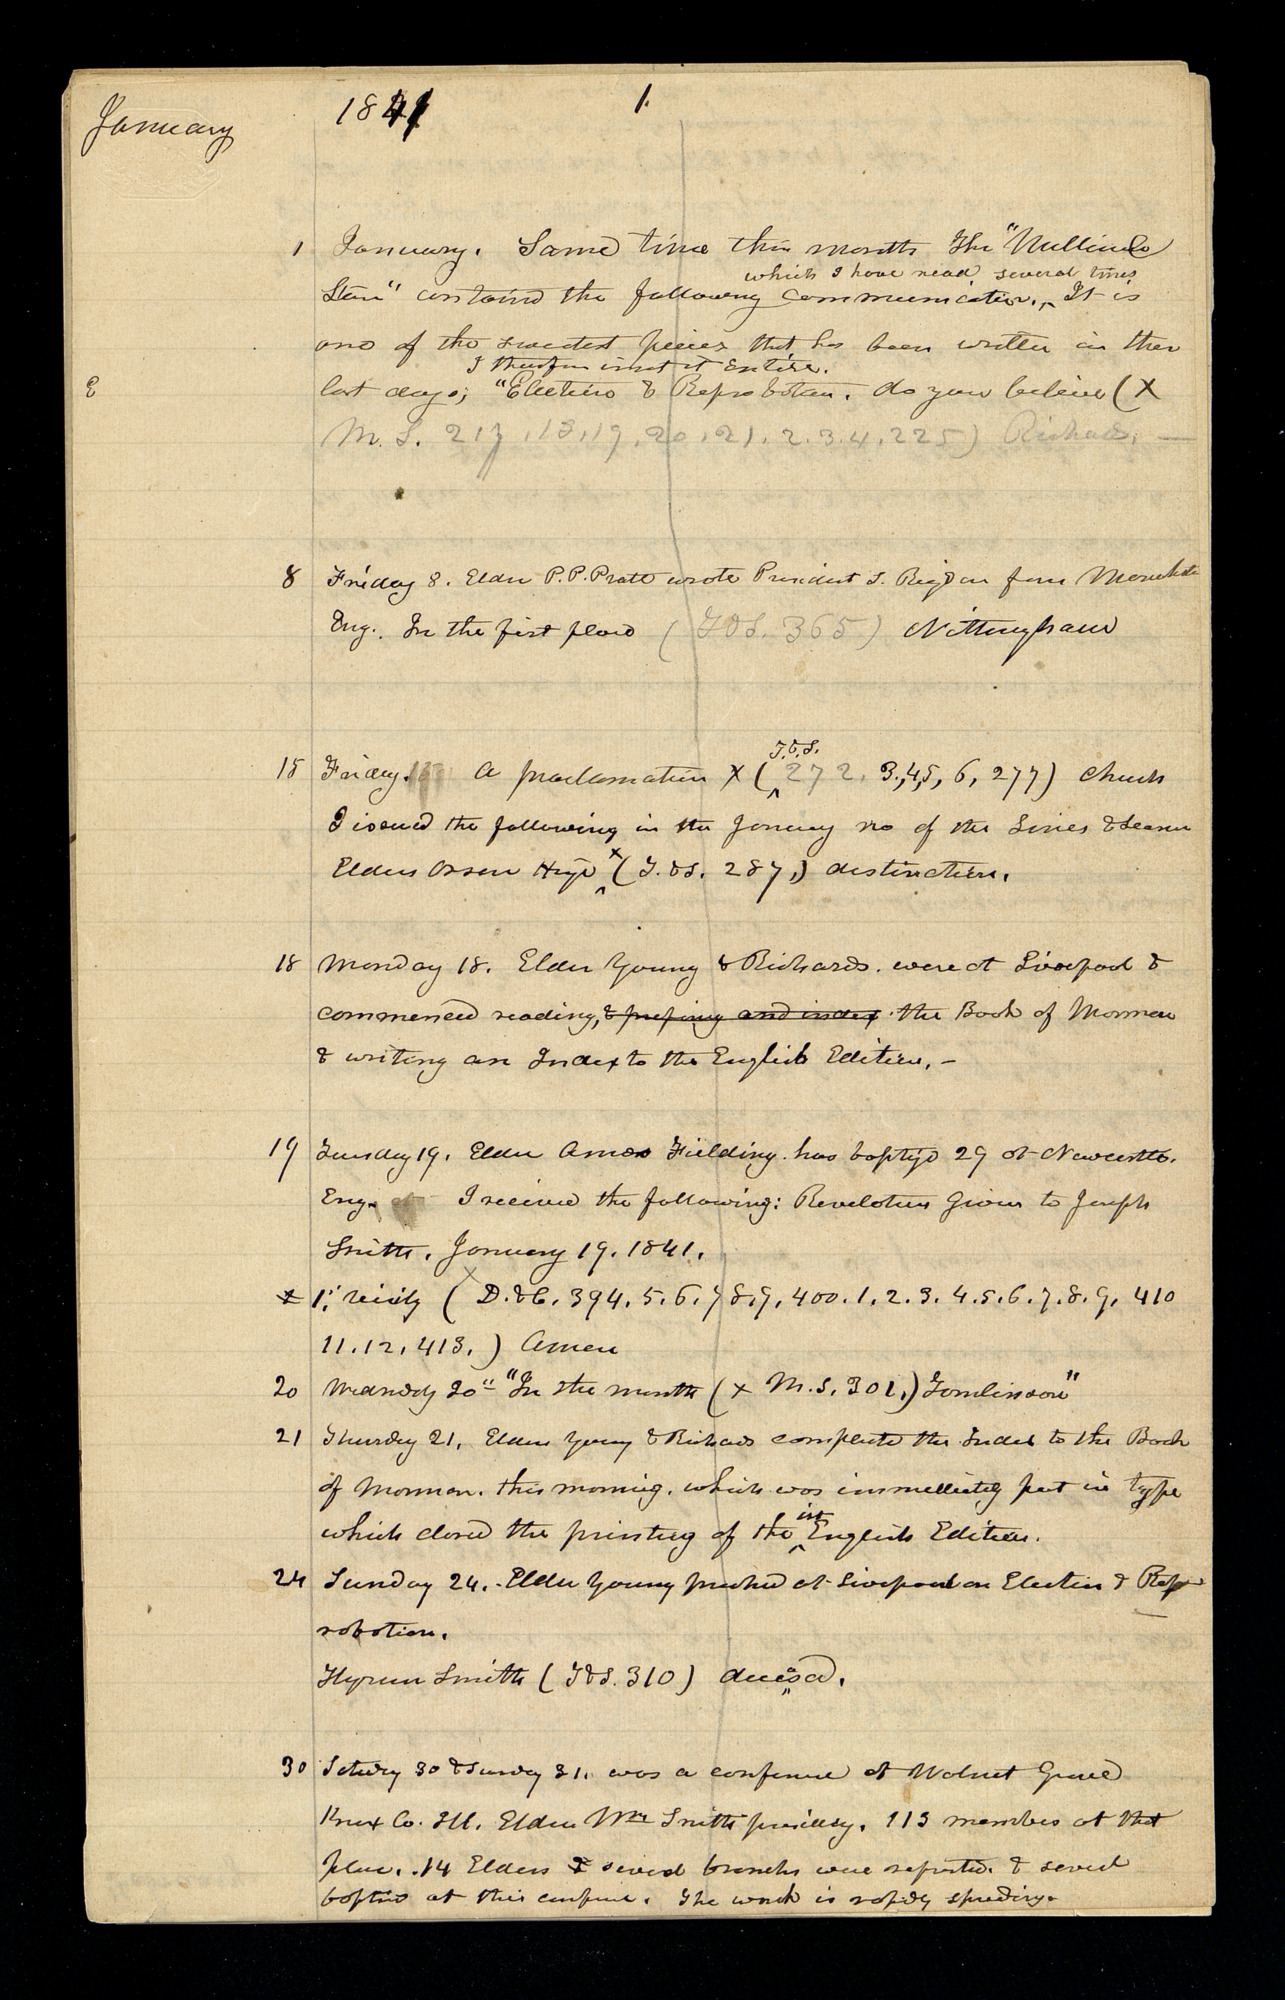 January 1841 1.
1 January. Some time this month the "Millineal
which I have read several times
Star" containd the following communication. ^ It is
one of the sweetest pieces that has been written in these
I therefore insert it entire.
E last days; "Election & Reprobation. do you believe (X
M. S. 217, 18, 19, 20, 21. 2. 3. 4. 225) Richards. —
8 Friday 8. Elder P. P. Pratt wrote President S. Rigdon from Manchester
Eng. In the first place ( T&S. 365 ) Nottingham
T.&S.
15 Friday. 15 A proclamation X ( ^ 272. 3., 4, 5, 6, 277) church
I issued the following in the January no of the Times & Seasons
Elders Orson Hyde X ^ (T. &S. 287,) distinction.
18 Monday 18. Elder Young & Richards. were at Liverpool &
commenced reading, & prefixing and index the Book of Mormon
& writing an Index to the English Edition. —
19 Tuesday 19. Elder Amos Fielding. has baptizd 29 at Newcastle.
Eng. I received the following: Revelation given to Joseph
Smith. January 19. 1841.
X 1; verily ( X D. &C. 394. 5. 6. 7 8. 9. 400. 1. 2. 3. 4. 5. 6. 7. 8. 9. 410
11. 12. 413. ) Amen
20 Wednsdy 20" "In the month (X M. S. 301.) Tomlinson"
21 Thursday 21. Elders Young & Richards completed the Index to the Book
of Mormon. this morning. which was immediately put in type
1st
which closed the printing of the ^ English Edition.
24 Sunday 24. Elder Young preached at Liverpool on Election & Rep
robation.
Hyrum Smith ( T&S. 310) deceasd.
30 Saturdy 30 & Sunday 31. was a conference at Walnut Grove
Knox Co. Ill. Elder Wm Smith presiding. 113 members at that
place. 14 Elders & several branches were reported. & several
baptizd at this conference. The work is rapidly spreading.